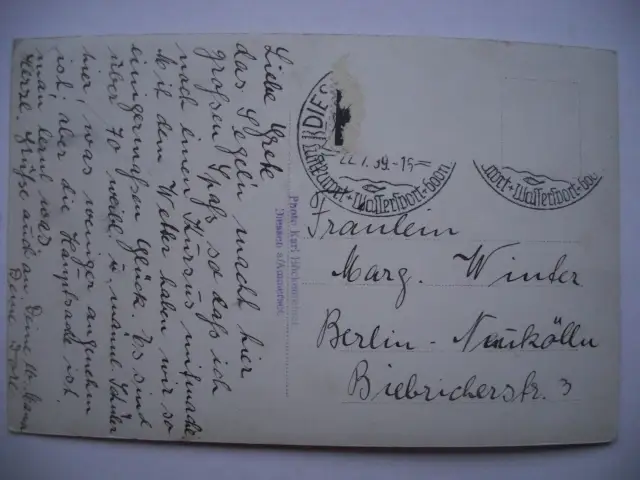 Liebe Grete
das Segeln macht hier
großen Spaß so daß ich
noch einen Kursus mitmache
Mit dem Wetter haben wir so
einigermaßen Glück. Es sind
über 70 weibl u. männl Schüler
hier! was weniger angenehm
ist! aber die Hauptsache ist
man lernt was.
Herzl. Grüße auch an Deine lb. Mama
Deine
Photo: Karl
Diessen a/Ammersee
22.7.39.-15
Luftkurort + Wassersport +
+ Wassersport +
Fräulein
Marg. Winter
Berlin-Neukölln
Biebricherstr. 3